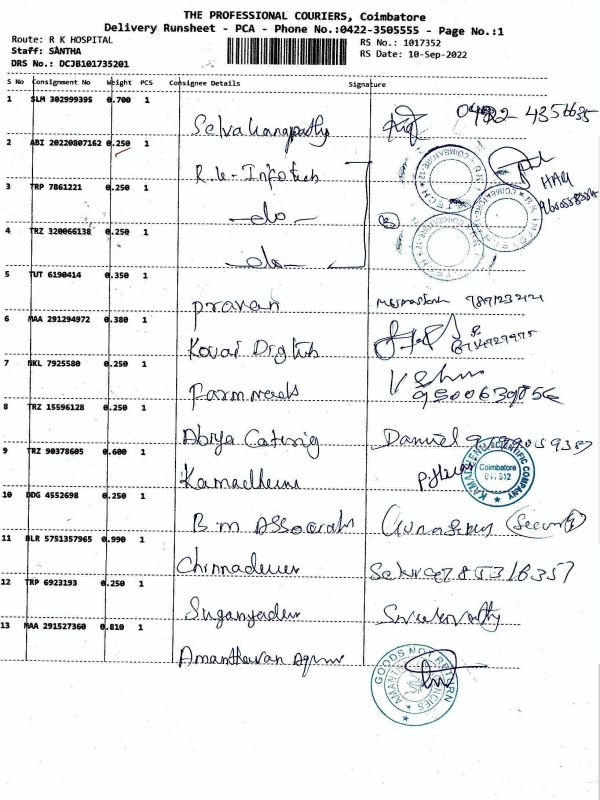 THE PROFESSIONAL COURIERS, Coimbatore
Delivery Runsheet - PCA - Phone No.:0422-3505555 - Page No.:1
Route: R K HOSPITAL
Staff: SANTHA
DRS No.: DCJB101735201
RS No.: 1017352
RS Date: 10-Sep-2022
S No Consignment No Weight PCS Consignee Details Signature
1 SLM 302999395 0.700 1
Selvaganapathy
2 ABI 20220807162 0.250 1
R.K-Infotech
HARI
3 TRP 7861221 0.250 1
-do-
4 TRZ 320066138 0.250 1
-do-
5 TUT 6190414 0.350 1
pravan
6 MAA 291294972 0.380 1
Kovai Digitals
7 NKL 7925580 0.250 1
Farm needs
9500639056
8 TRZ 15596128 0.250 1
Abiya Catering Daniel
9 TRZ 90378605 0.600 1
Kamadhenu
KAMADHENU SCIENTIFIC COMPANY
Coimbatore
641 012
10 DDG 4552698 0.250 1
B m Associats (Security)
11 BLR 5751357965 0.990 1
Chinnadurai
12 TRP 6923193 0.250 1
Suganyadevi
13 MAA 291527360 0.810 1
GOODS NOT RETURN